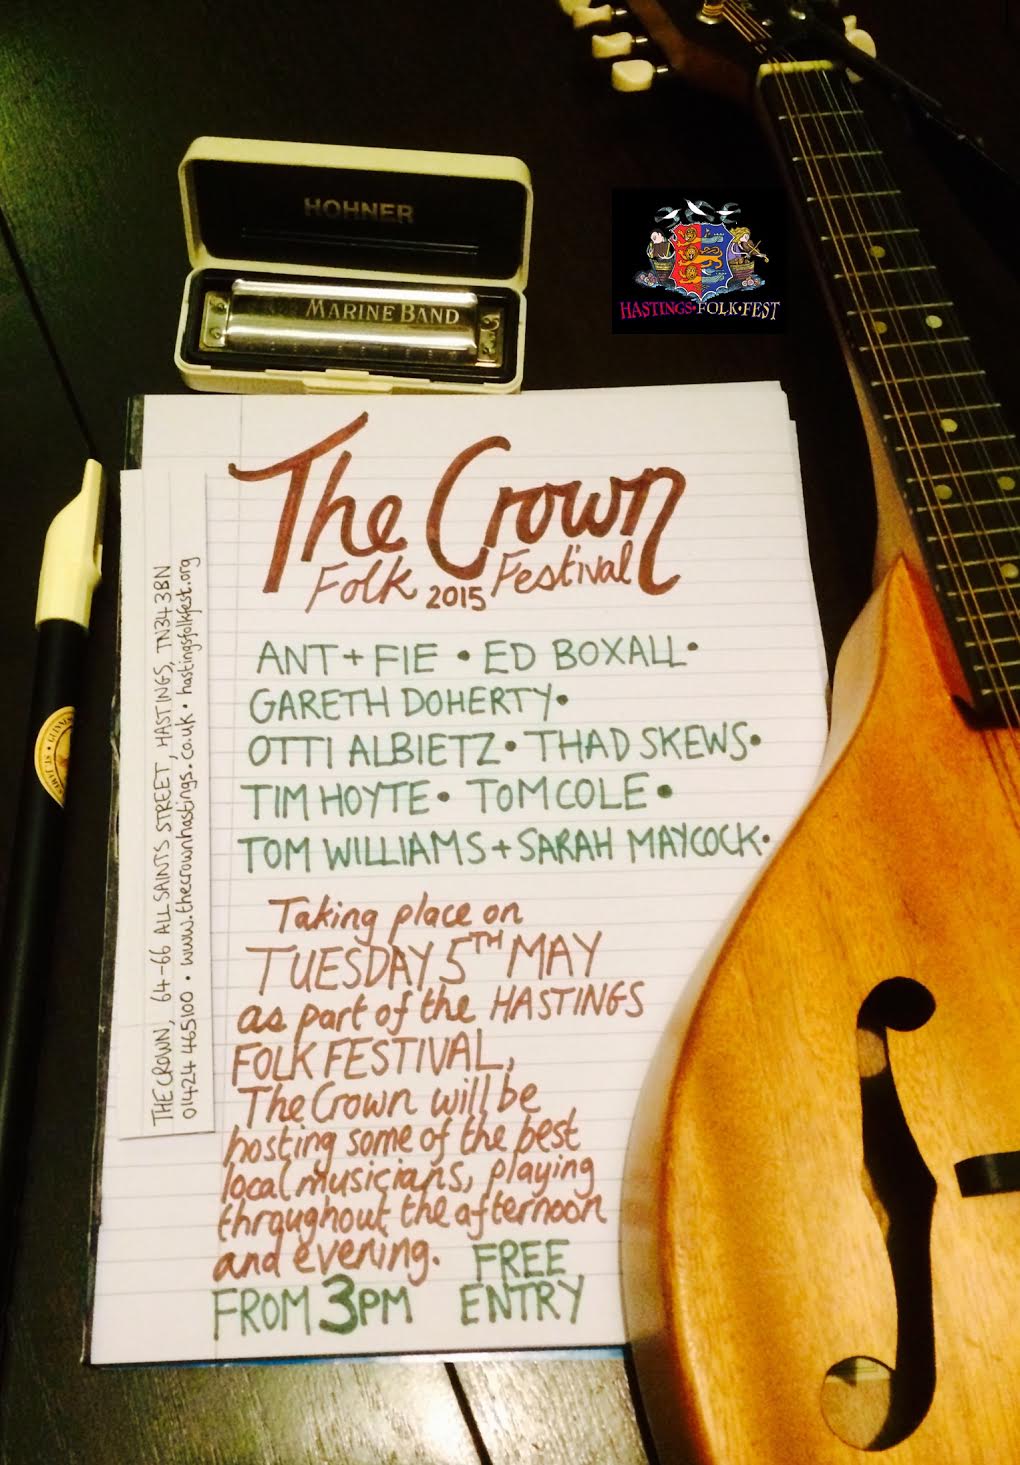 HOHNER
MARINE BAND
HASTINGS•FOLK•FEST
The Crown
Folk 2015 Festival
ANT + FIE • ED BOXALL•
GARETH DOHERTY•
OTTI ALBIETZ • THAD SKEWS•
TIM HOYTE • TOM COLE •
TOM WILLIAMS + SARAH MAYCOCK•
Taking place on
TUESDAY 5TH MAY
as part of the HASTINGS
FOLK FESTIVAL,
The Crown will be
hosting some of the best
local musicians, playing
throughout the afternoon
and evening.
FROM 3PM
FREE
ENTRY
THE CROWN, 64-66 ALL SAINTS STREET, HASTINGS, TN34 3BN
01424 465100 • www.thecrownhastings.co.uk • hastingsfolkfest.org